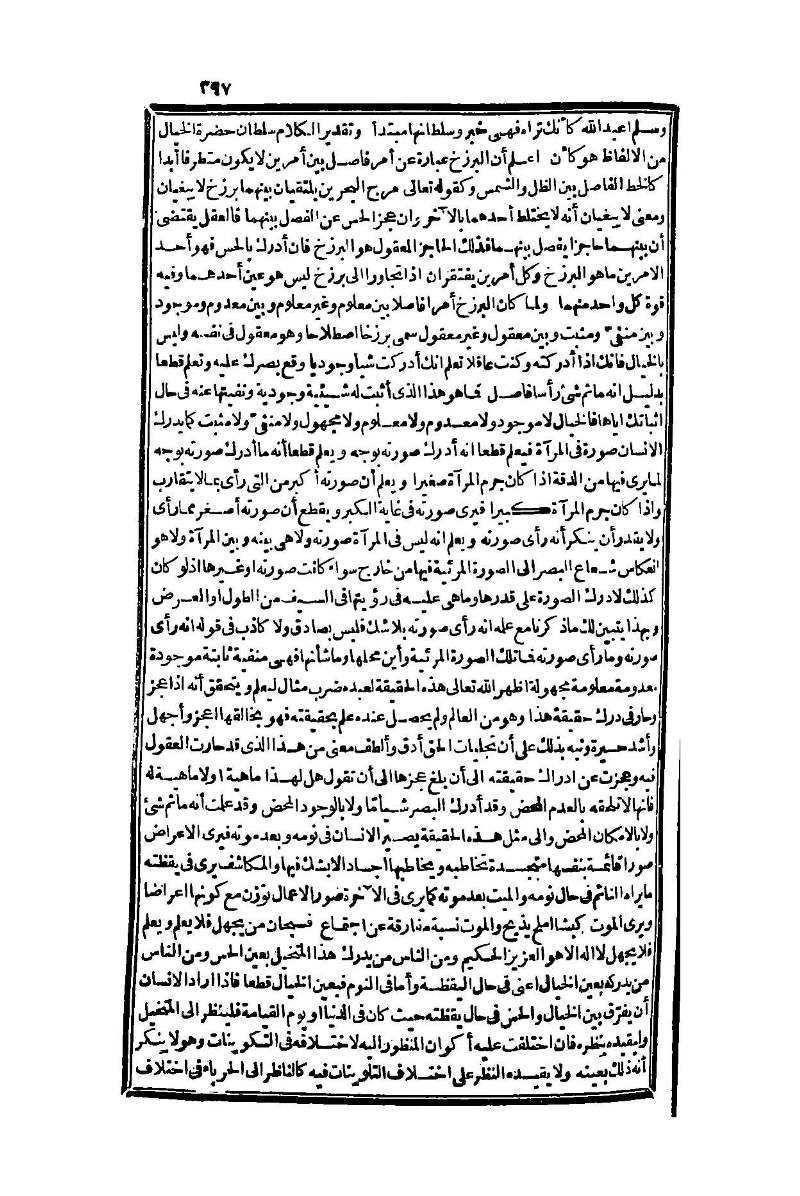 ٣٩٧
وسلم اعبد الله كأنك تراه فهى خبر وسلطانها مبتدأ وتقدير الكلام سلطان حضرة الخيال
من الالفاظ هو كأن اعلم أن البرزخ عبارة عن أمر فاصل بين أمرين لا يكون متطرفا أبدا
كالخط الفاصل بين الظل والشمس وكقوله تعالى مرج البحرين يلتقيان بينهما برزخ لا يبغيان
ومعنى لا يبغيان أنه لا يختلط أحدهما بالآخر وان عجز الحس عن الفصل بينهما فالعقل يقتضى
أن بينهما حاجزا يفصل بينهما فذلك الحاجز المعقول هو البرزخ فان أدرك بالحس فهو أحد
الامرين ما هو البرزخ وكل أمرين يفتقران اذا تجاورا الى برزخ ليس هو عين أحدهما وفيه
قوة كل واحد منهما ولما كان البرزخ أمرا فاصلا بين معلوم وغير معلوم وبين معدوم وموجود
وبين منفى ومثبت وبين معقول وغير معقول سمى برزخا اصطلاحا وهو معقول فى نفسه وليس
بالخيال فانك اذا أدركته وكنت عاقلا تعلم انك أدركت شيأ وجوديا وقع بصرك عليه وتعلم قطعا
بدليل انه ما ثم شئ رأسا فاصل فما هو هذا الذى أثبت له شيئية وجودية ونفيتها عنه فى حال
اثباتك اياها فالخيال لا موجود ولا معدوم ولا معلوم ولا مجهول ولا منفى ولا مثبت كما يدرك
الانسان صورة فى المرآة فيعلم قطعا انه أدرك صورته بوجه ويعلم قطعا أنه ما أدرك صورته بوجه
لما يرى فيها من الدقة اذا كان جرم المرآة صغيرا ويعلم أن صورته أكبر من التى رأى بما لا يتقارب
واذا كان جرم المرآة كبيرا فيرى صورته فى غاية الكبر ويقطع أن صورته أصغر مما رأى
ولا يقدر أن ينكر أنه رأى صورته ويعلم انه ليس فى المرآة صورته ولا هى بينه وبين المرآة ولا هو
انعكاس شعاع البصر الى الصورة المرئية فيها من خارج سواء كانت صورته او غيرها اذ لو كان
كذلك لادرك الصورة على قدرها وما هى عليه فى رؤيتها فى السيف من الطول او العرض
وبهذا يتبين لك ما ذكرنا مع علمه انه رأى صورته بلا شك فليس بصادق ولا كاذب فى قوله انه رأى
صورته وما رأى صورته فما تلك الصورة المرئية وأين محلها وما شأنها فهى منفية ثابتة موجودة
معدومة معلومة مجهولة اظهر الله تعالى هذه الحقيقة لعبده ضرب مثال ليعلم ويتحقق أنه اذا عجز
وحار فى درك حقيقة هذا وهو من العالم ولم يحصل عنده علم بحقيقته فهو بخالقها اعجز وأجهل
وأشد حيرة ونبه بذلك على أن تجليات الحق أدق وألطف معنى من هذا الذى قد حارت العقول
فيه وعجزت عن ادراك حقيقته الى أن بلغ عجزها الى أن تقول هل لهذا ماهية اولا ماهية له
فانها لا تلحقه بالعدم المحض وقد أدرك البصر شيأ ما ولا بالوجود المحض وقد علمت أنه ما ثم شئ
ولا بالامكان المحض والى مثل هذه الحقيقة يصير الانسان فى نومه وبعد موته فيرى الاعراض
صورا قائمة بنفسها متجسدة تخاطبه ويخاطبها اجسادا لا يشك فيها والمكاشف يرى فى يقظته
ما يراه النائم فى حال نومه والميت بعد موته كما يرى فى الآخرة صور الاعمال توزن مع كونها اعراضا
ويرى الموت كبشا املح يذبح والموت نسبة مفارقة عن اجتماع فسبحان من يجهل فلا يعلم ويعلم
فلا يجهل لا اله الا هو العزيز الحكيم ومن الناس من يدرك هذا المتخيل بعين الحس ومن الناس
من يدركه بعين الخيال اعنى فى حال اليقظة وأما فى النوم فبعين الخيال قطعا فاذا اراد الانسان
أن يفرق بين الخيال والحس فى حال يقظته حيث كان فى الدنيا او يوم القيامة فلينظر الى المتخيل
وليقيده بنظره فان اختلفت عليه أكوان المنظور اليه لاختلافه فى التكوينات وهو لا ينكر
أنه ذلك بعينه ولا يقيده النظر على اختلاف التلوينات فيه كالناظر الى الحرباء فى اختلاف